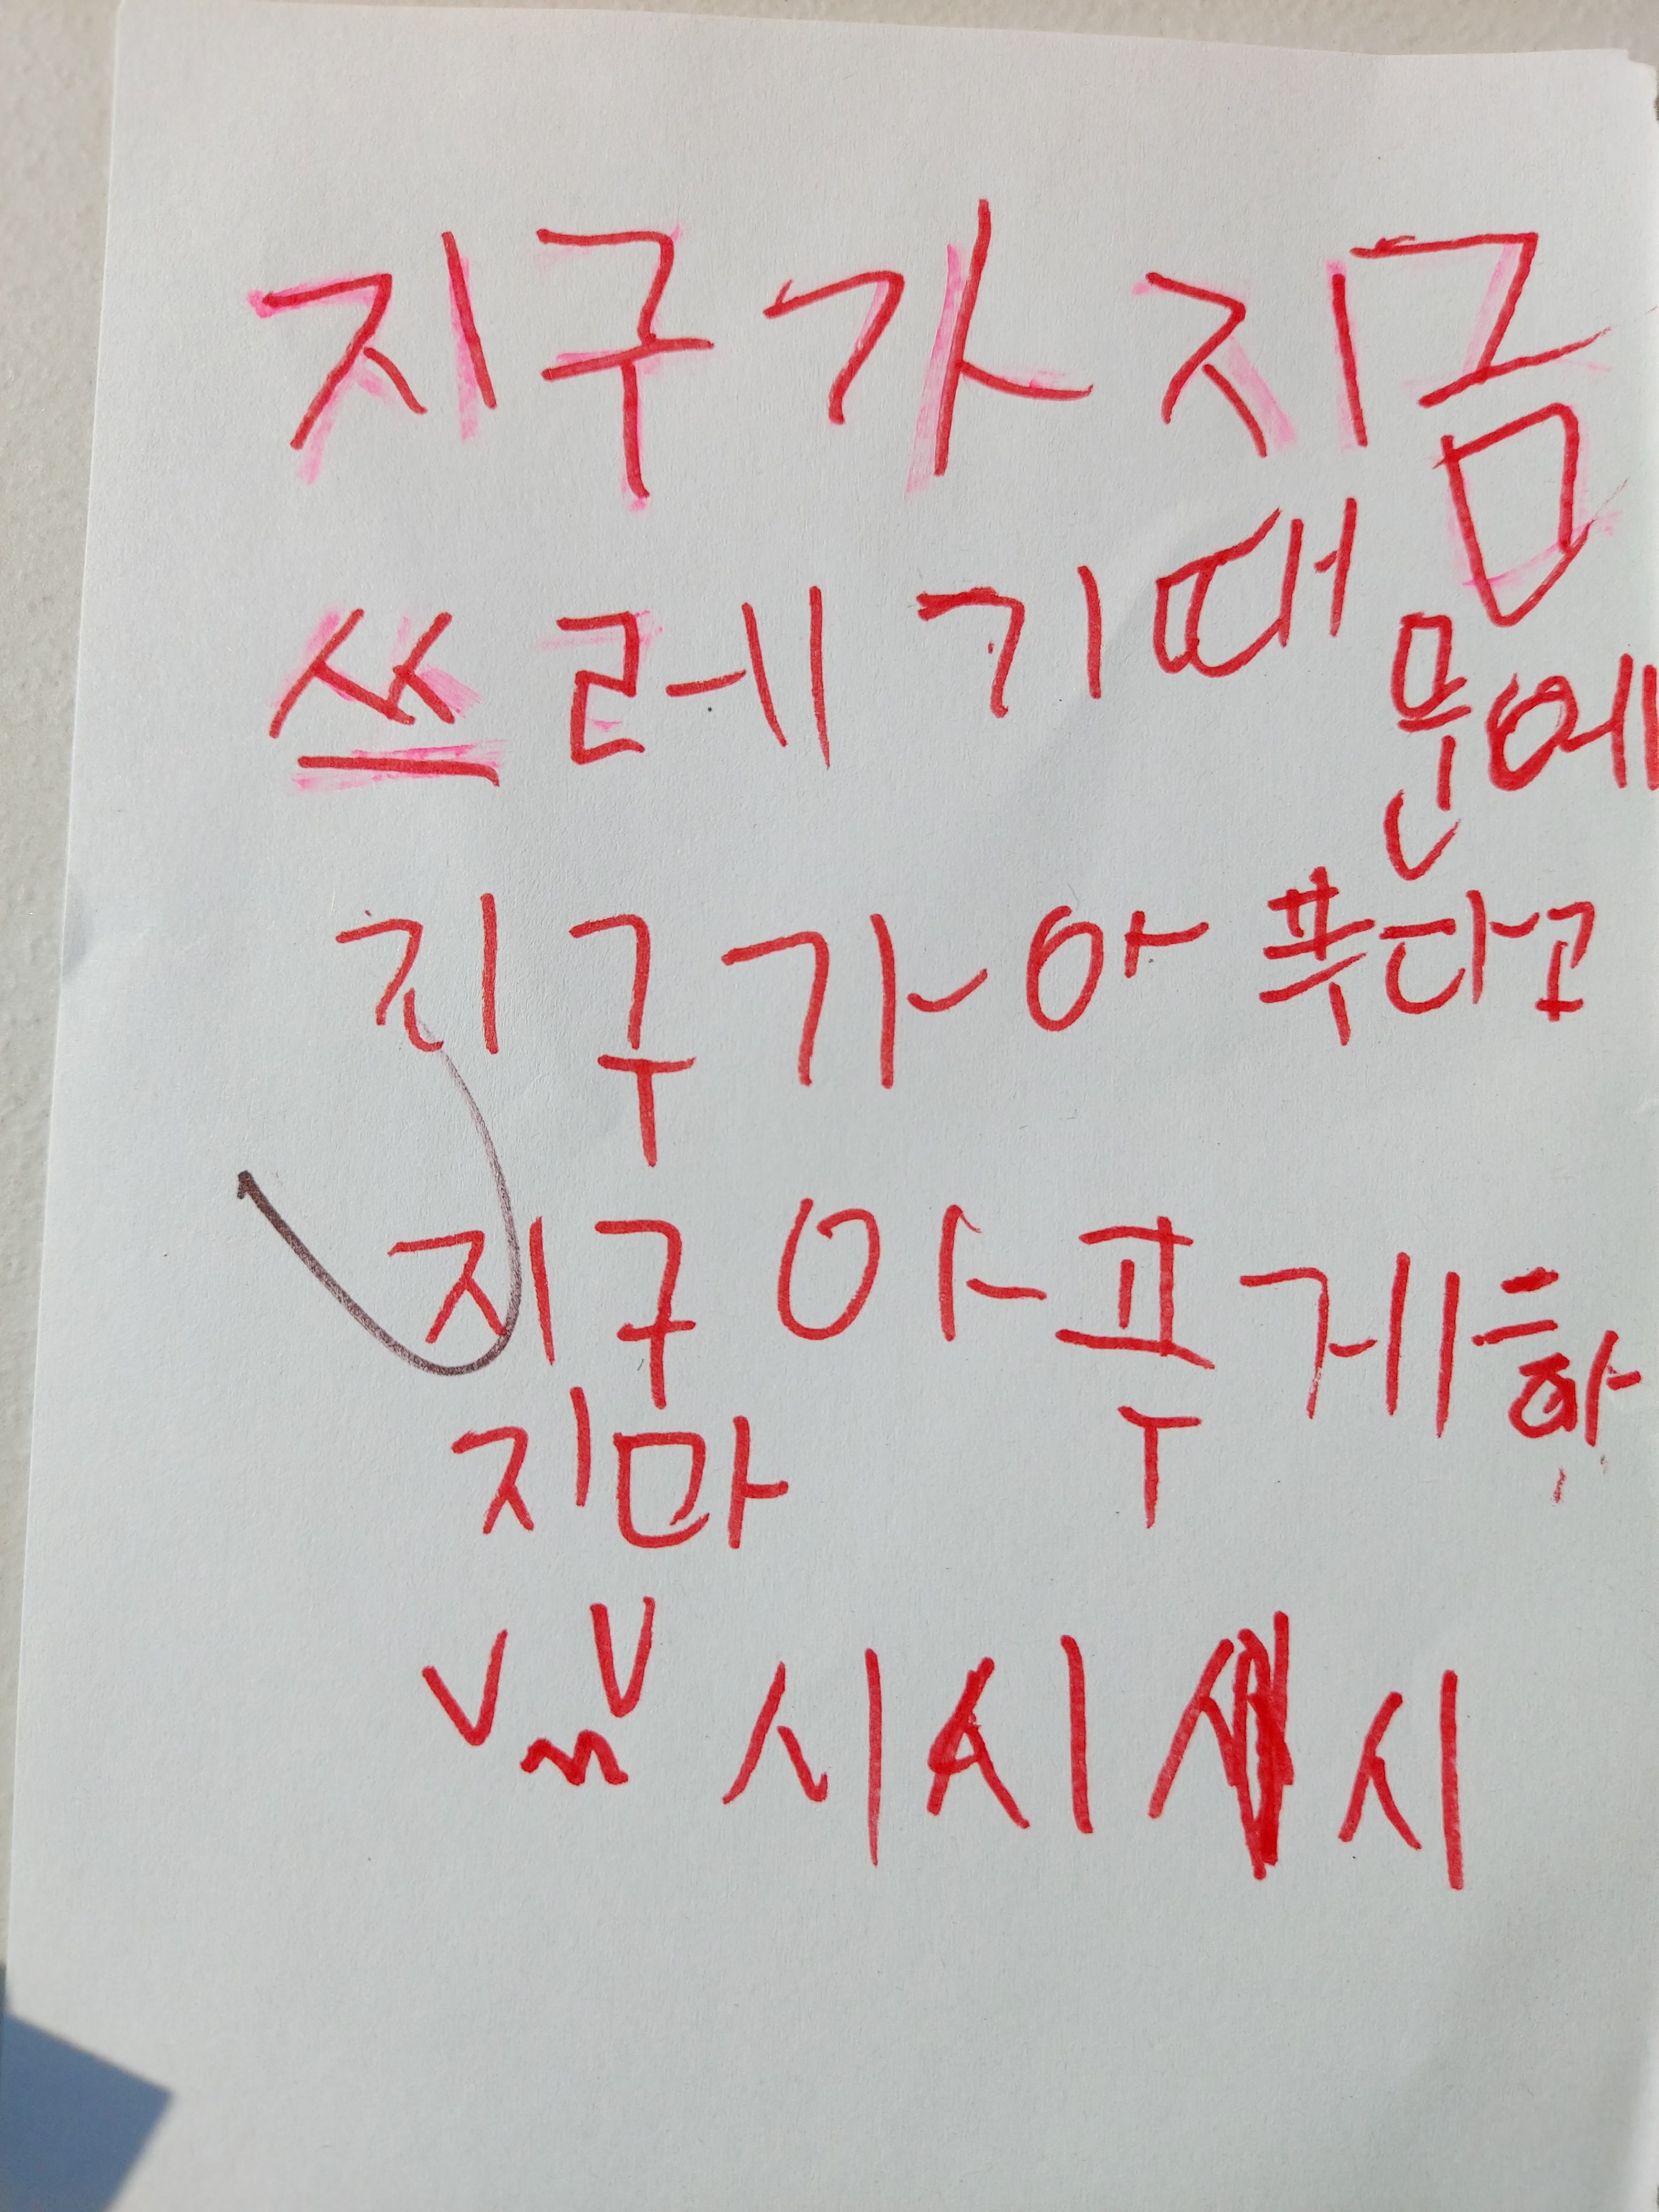 지구가지금
쓰레기때문에
지구가아푸다고
지구아푸게하
지마
시시시시